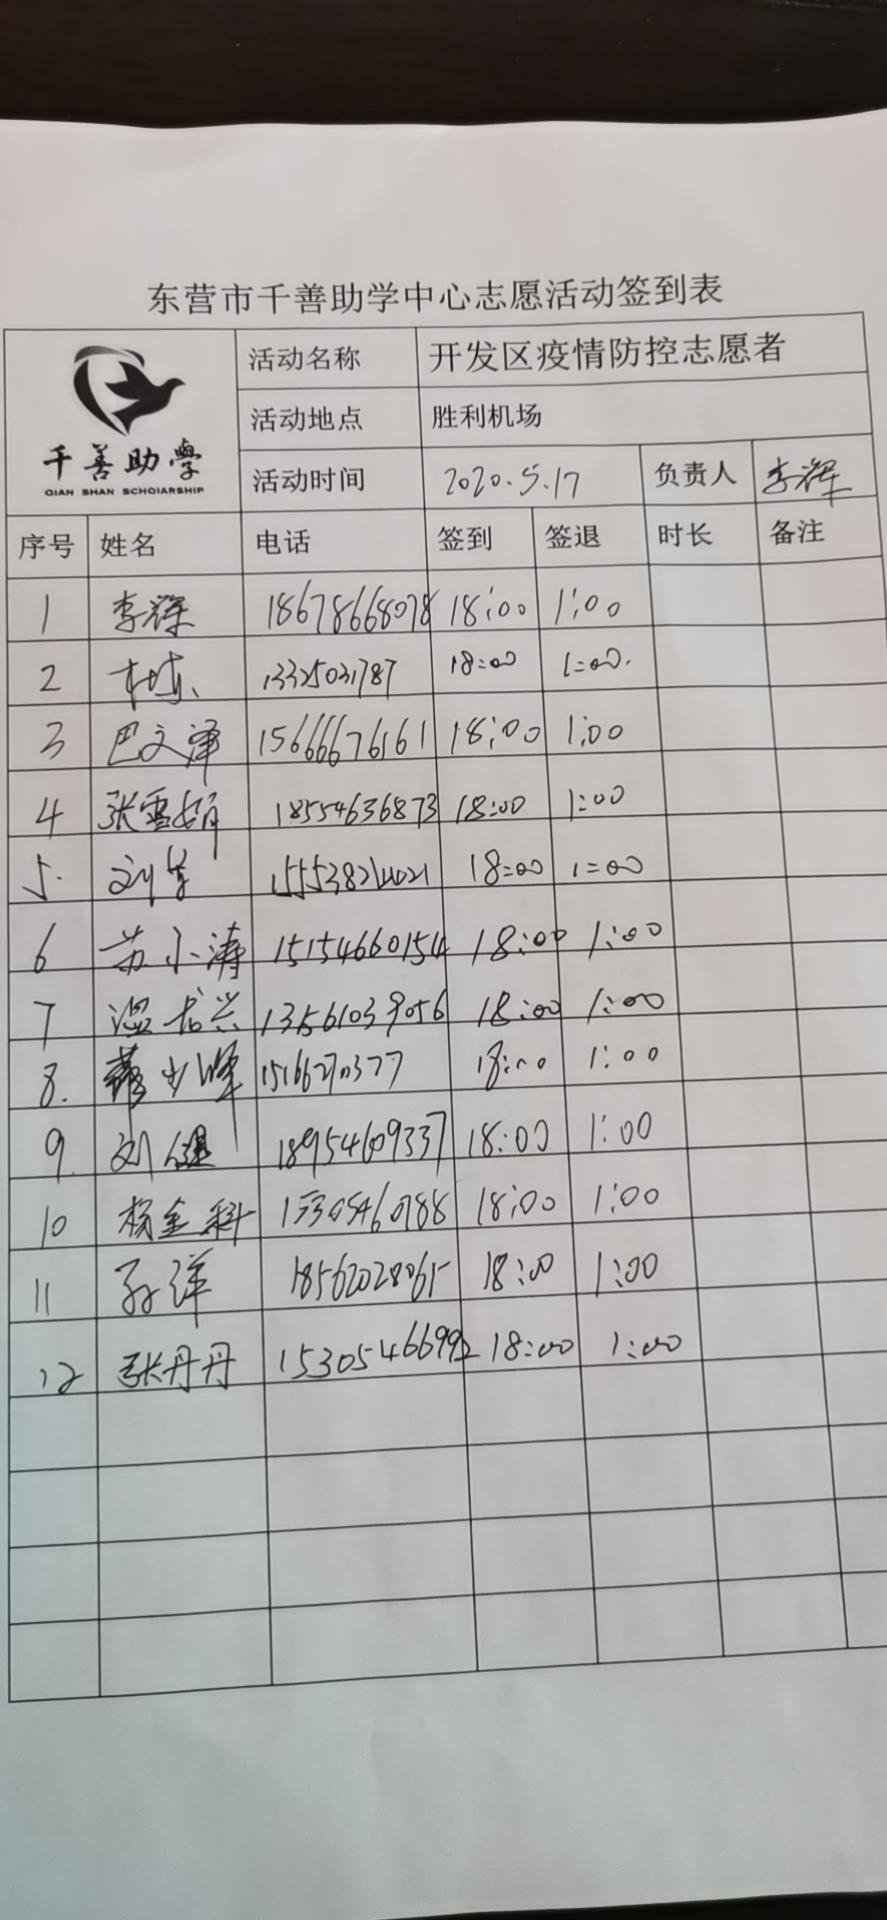 东营市千善助学中心志愿活动签到表
千善助學
QIAN SHAN SCHOIARSHIP
活动名称 开发区疫情防控志愿者
活动地点 胜利机场
活动时间 2020.5.17 负责人 李辉
序号 姓名 电话 签到 签退 时长 备注
1 李辉 18678668078 18:00 1:00
2 13325031787 18:00 1:00.
3 巴文泽 15666676161 18:00 1:00
4 张雪娟 18554636873 18:00 1:00
5. 刘学 18:00 1:00
6 苏小涛 15154660154 18:00 1:00
7 温书兴 13561039056 18:00 1:00
8. 少峰 15166270377 18:00 1:00
9. 刘健 18954609337 18:00 1:00
10 杨金科 15305460788 18:00 1:00
11 孙洋 18562028065 18:00 1:00
12 张丹丹 15305466992 18:00 1:00